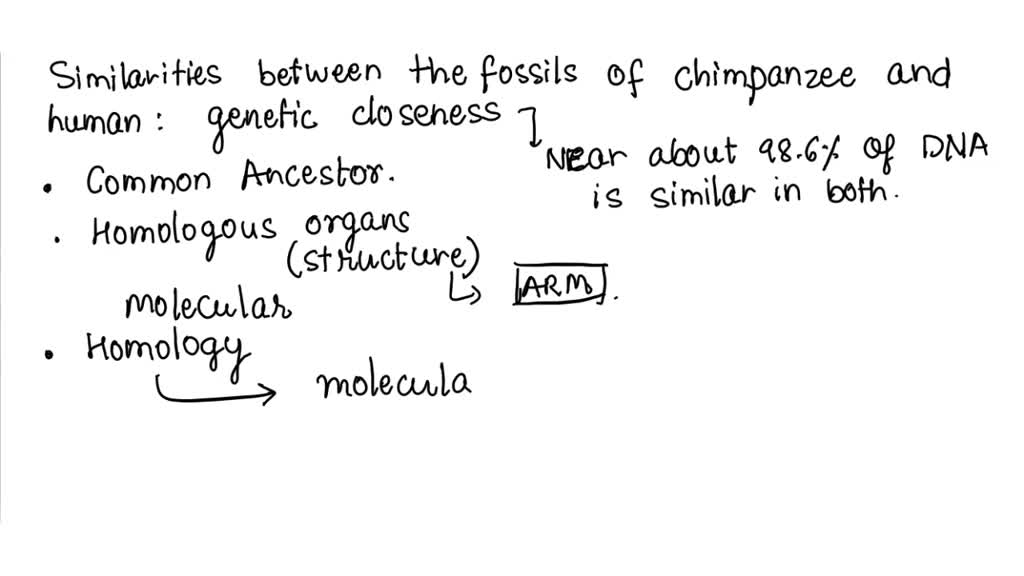 Similarities between the fossils of chimpanzee and
human: genetic closeness
Near about 98.6% of DNA
is similar in both.
• Common Ancestor.
• Homologous organs
(structure)
ARM.
molecular
• Homology
molecula